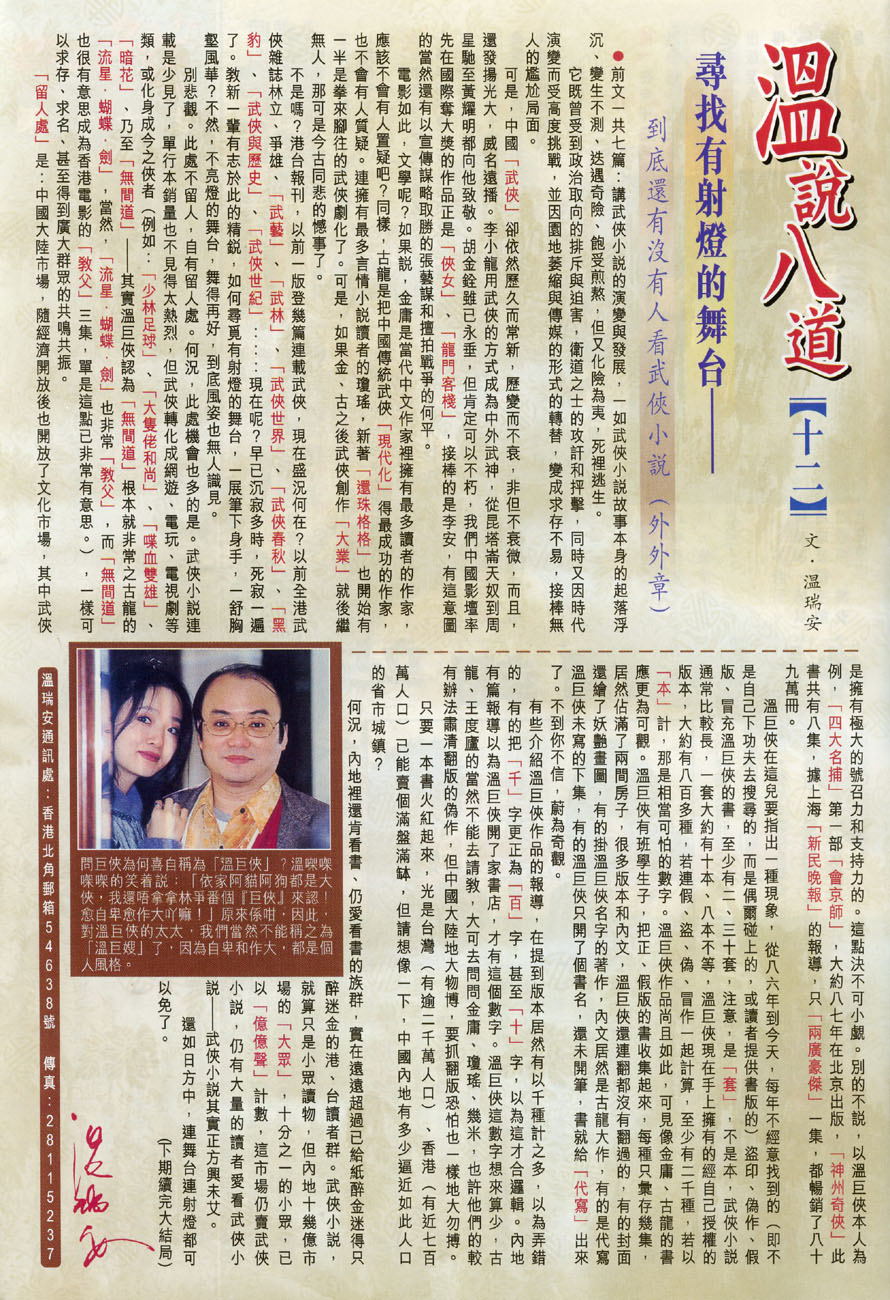 溫說八道【十二】
文·溫瑞安
尋找有射燈的舞台——
到底還有沒有人看武俠小說（外外章）
●前文一共七篇：講武俠小說的演變與發展，一如武俠小說故事本身的起落浮
沉、變生不測、迭遇奇險、飽受煎熬，但又化險為夷，死裡逃生。
它既曾受到政治取向的排斥與迫害，衛道之士的攻訐和抨擊，同時又因時代
演變而受高度挑戰，並因園地萎縮與傳媒的形式的轉替，變成求存不易，接棒無
人的尷尬局面。
可是，中國「武俠」卻依然歷久而常新，歷變而不衰，非但不衰微，而且，
還發揚光大，威名遠播。李小龍用武俠的方式成為中外武神，從昆塔崙天奴到周
星馳至黃耀明都向他致敬。胡金銓雖已永垂，但肯定可以不朽，我們中國影壇率
先在國際奪大獎的作品正是「俠女」、「龍門客棧」，接棒的是李安，有這意圖
的當然還有以宣傳謀略取勝的張藝謀和擅拍戰爭的何平。
電影如此，文學呢？如果說，金庸是當代中文作家裡擁有最多讀者的作家，
應該不會有人置疑吧？同樣，古龍是把中國傳統武俠「現代化」得最成功的作家，
也不會有人質疑。連擁有最多言情小說讀者的瓊瑤，新著「還珠格格」也開始有
一半是拳來腳往的武俠劇化了。可是，如果金、古之後武俠創作「大業」就後繼
無人，那可是今古同悲的憾事了。
不是嗎？港台報刊，以前一版登幾篇連載武俠，現在盛況何在？以前全港武
俠雜誌林立、爭雄，「武藝」、「武林」、「武俠世界」、「武俠春秋」、「黑
豹」、「武俠與歷史」、「武俠世紀」：：：：現在呢？早已沉寂多時，死寂一遍
了。教新一輩有志於此的精銳，如何尋覓有射燈的舞台，一展筆下身手，一舒胸
壑風華？不然，不亮燈的舞台，舞得再好，到底風姿也無人識見。
別悲觀。此處不留人，自有留人處。何況，此處機會也多的是。武俠小說連
載是少見了，單行本銷量也不見得太熱烈，但武俠轉化成網遊、電玩、電視劇等
類，或化身成今之俠者（例如：「少林足球」、「大隻佬和尚」、「喋血雙雄」、
「暗花」、乃至「無間道」——其實溫巨俠認為「無間道」根本就非常之古龍的
「流星·蝴蝶·劍」，當然，「流星·蝴蝶　劍」也非常「教父」，而「無間道」
也很有意思成為香港電影的「教父」三集，單是這點已非常有意思。），一樣可
以求存、求名、甚至得到廣大群眾的共鳴共振。
「留人處」是：中國大陸市場，隨經濟開放後也開放了文化市場，其中武俠
是擁有極大的號召力和支持力的。這點決不可小覷。別的不說，以溫巨俠本人為
例，「四大名捕」第一部「會京師」，大約八七年在北京出版，「神州奇俠」此
書共有八集，據上海「新民晚報」的報導，只「兩廣豪傑」一集，都暢銷了八十
九萬冊。
溫巨俠在這兒要指出一種現象，從八六年到今天，每年不經意找到的（即不
是自己下功夫去搜尋的，而是偶爾碰上的，或讀者提供書版的）盜印、偽作、假
版、冒充溫巨俠的書，至少有二、三十套，注意，是「套」，不是本，武俠小說
通常比較長，一套大約有十本、八本不等，溫巨俠現在手上擁有的經自己授權的
版本，大約有八百多種，若連假、盜、偽、冒作一起計算，至少有二千種，若以
「本」計，那是相當可怕的數字。溫巨俠作品尚且如此，可見像金庸、古龍的書
應更為可觀。溫巨俠有班學生子，把正、假版的書收集起來，每種只彙存幾集，
居然佔滿了兩間房子，很多版本和內文，溫巨俠還連翻都沒有翻過的，有的封面
還繪了妖艷畫圖，有的掛溫巨俠名字的著作，內文居然是古龍大作，有的是代寫
溫巨俠未寫的下集，有的溫巨俠只開了個書名，還未開筆，書就給「代寫」出來
了。不到你不信，蔚為奇觀。
有些介紹溫巨俠作品的報導，在提到版本居然有以千種計之多，以為弄錯
的，有的把「千」字更正為「百」字，甚至「十」字，以為這才合邏輯。內地
有篇報導以為溫巨俠開了家書店，才有這個數字。溫巨俠這數字想來算少，古
龍、王度廬的當然不能去請教，大可去問問金庸、瓊瑤、幾米，也許他們的較
有辦法肅清翻版的偽作，但中國大陸地大物博，要抓翻版恐怕也一樣地大勿搏。
只要一本書火紅起來，光是台灣（有逾二千萬人口）、香港（有近七百
萬人口）已能賣個滿盤滿缽，但請想像一下，中國內地有多少逼近如此人口
的省市城鎮？
何況，內地裡還肯看書、仍愛看書的族群，實在遠遠超過已給紙醉金迷得只
醉迷金的港、台讀者群。武俠小說，
就算只是小眾讀物，但內地十幾億市
場的「大眾」，十分之一的小眾，已
以「億億聲」計數，這市場仍賣武俠
小說，仍有大量的讀者愛看武俠小
說——武俠小說其實正方興未艾。
還如日方中，連舞台連射燈都可
以免了。
（下期續完大結局）
問巨俠為何喜自稱為「溫巨俠」？溫㗎㗎
㗎㗎的笑着說：「依家阿貓阿狗都是大
俠，我還唔拿拿林爭番個『巨俠』來認！
愈自卑愈作大吖嘛！」原來係咁，因此，
對溫巨俠的太太，我們當然不能稱之為
「溫巨嫂」了，因為自卑和作大，都是個
人風格。
溫瑞安通訊處：香港北角郵箱54638號　傳真：28115237
溫瑞安